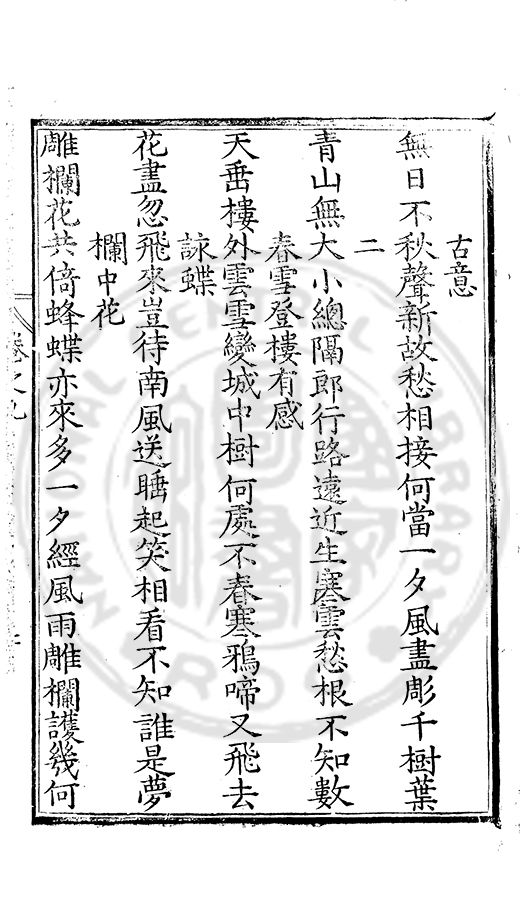 古意
無日不秋聲新故愁相接何當一夕風盡彫千樹葉
二
青山無大小總隔郎行路遠近生塞雲愁根不知數
春雪登樓有感
天垂樓外雲雪變城中樹何處不春寒鴉啼又飛去
詠蝶
花盡忽飛來豈待南風送睡起笑相看不知誰是夢
欄中花
雕欄花共倚蜂蝶亦來多一夕經風雨雕欄護幾何
卷之九